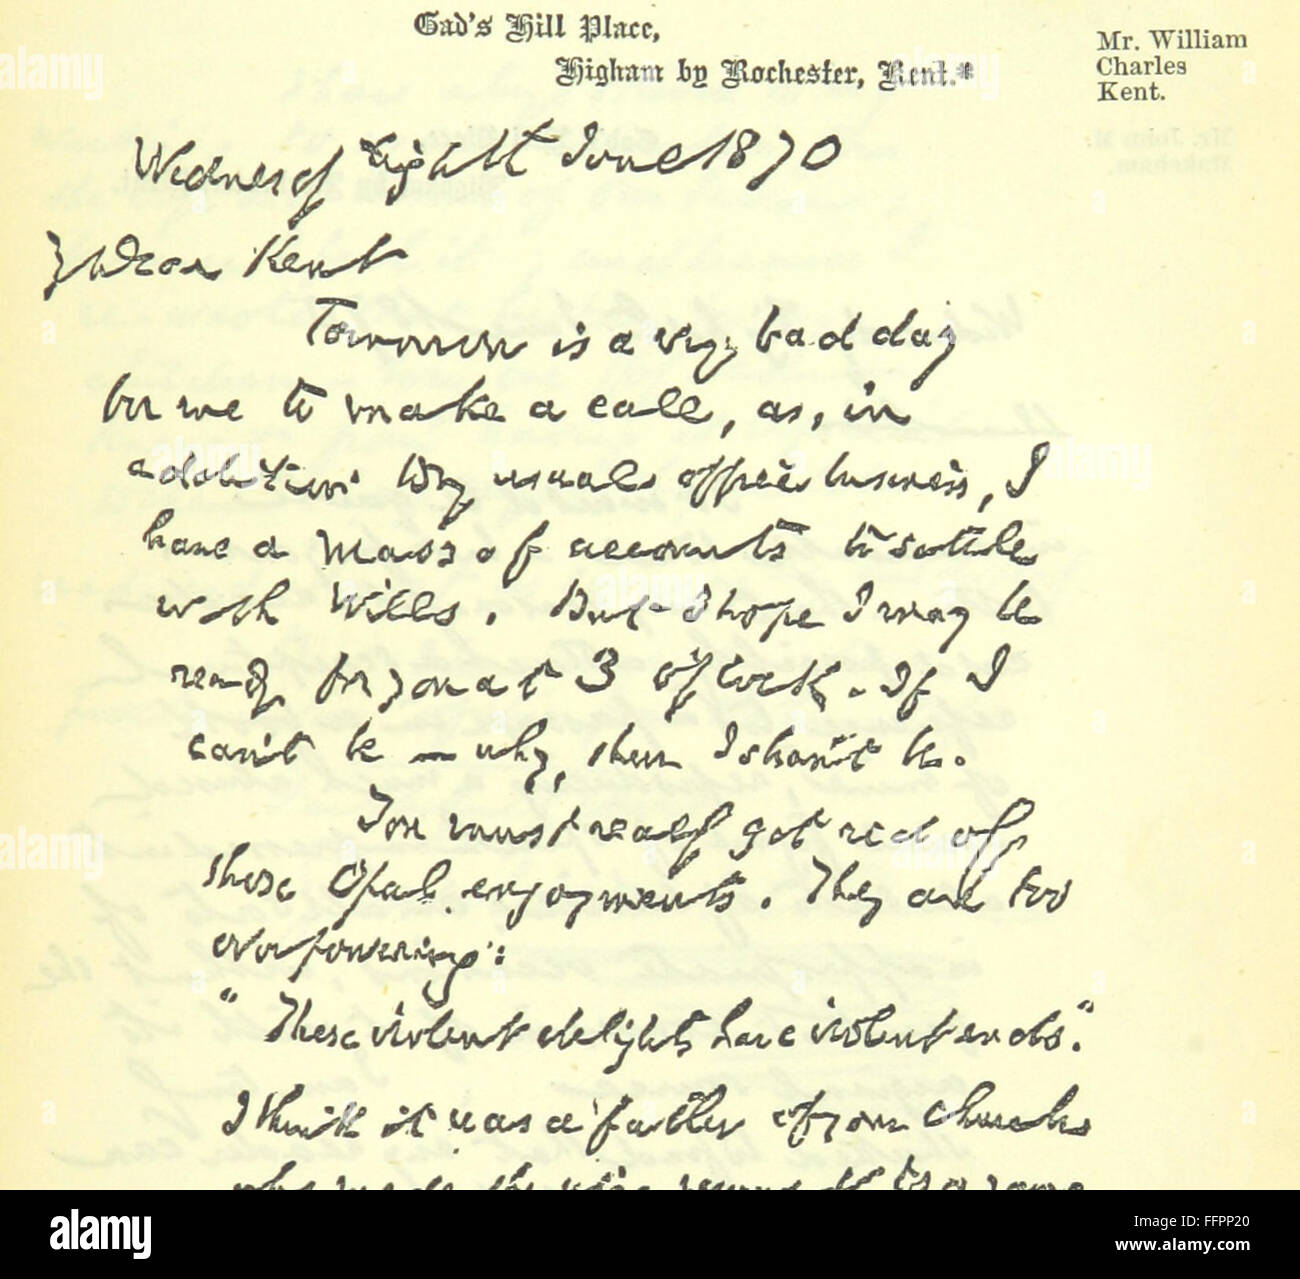 Gad's Hill Place,
Higham by Rochester, Kent.*
Mr. William
Charles
Kent.
Wednesday Eighth June 1870
My Dear Kent
Tomorrow is a very bad day
for me to make a call, as, in
addition to my usual office business, I
have a mass of accounts to settle
with Wills. But I hope I may be
ready for you at 3 o'clock. If I
can't be — why, then I shan't be.
You must really get rid of
those Opal enjoyments. They are too
overpowering:
"These violent delights have violent ends."
I think it was a father of your churche
who made the wise remark to a young
alamy
Image ID: FFPP20
www.alamy.com